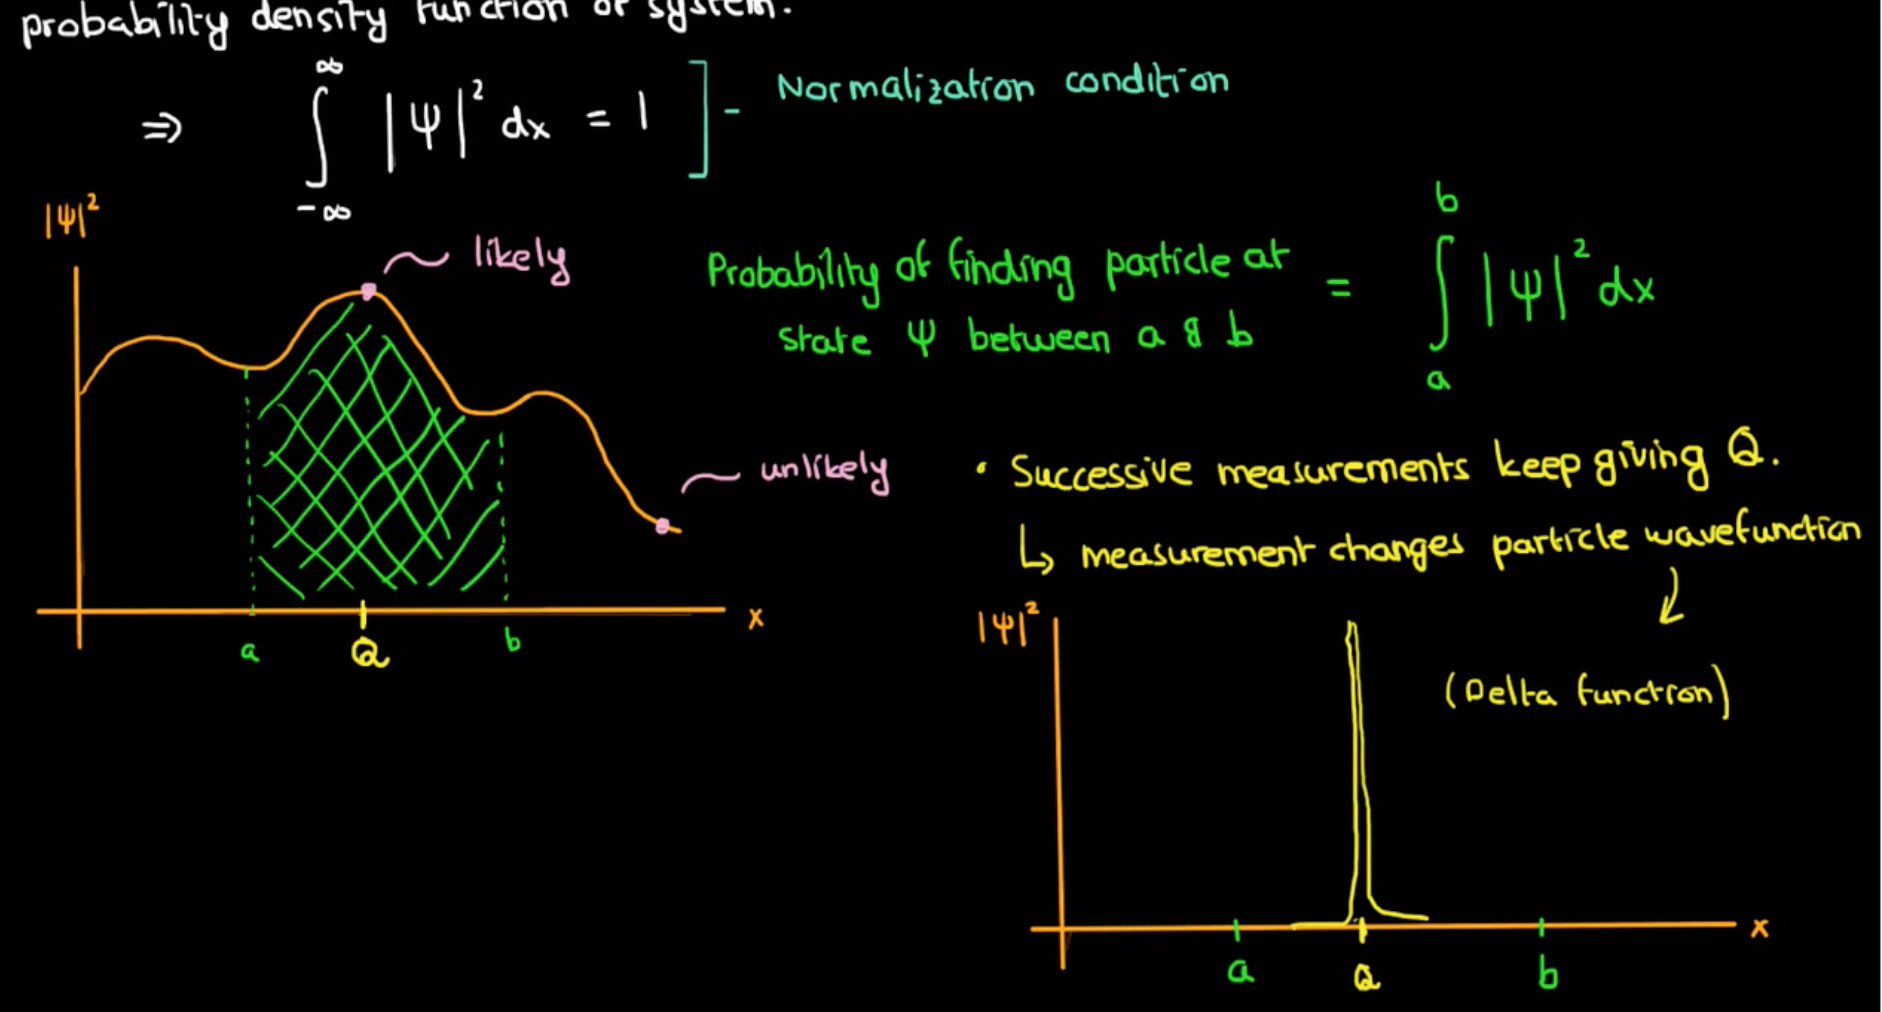 probability density function of system.
⇒ ∫_{-∞}^{∞} |Ψ|² dx = 1 ] - Normalization condition
|Ψ|²
likely
unlikely
a Q b x
Probability of finding particle at
state Ψ between a & b = ∫_{a}^{b} |Ψ|² dx
• Successive measurements keep giving Q.
↳ measurement changes particle wavefunction
↓
(Delta function)
|Ψ|²
a Q b x